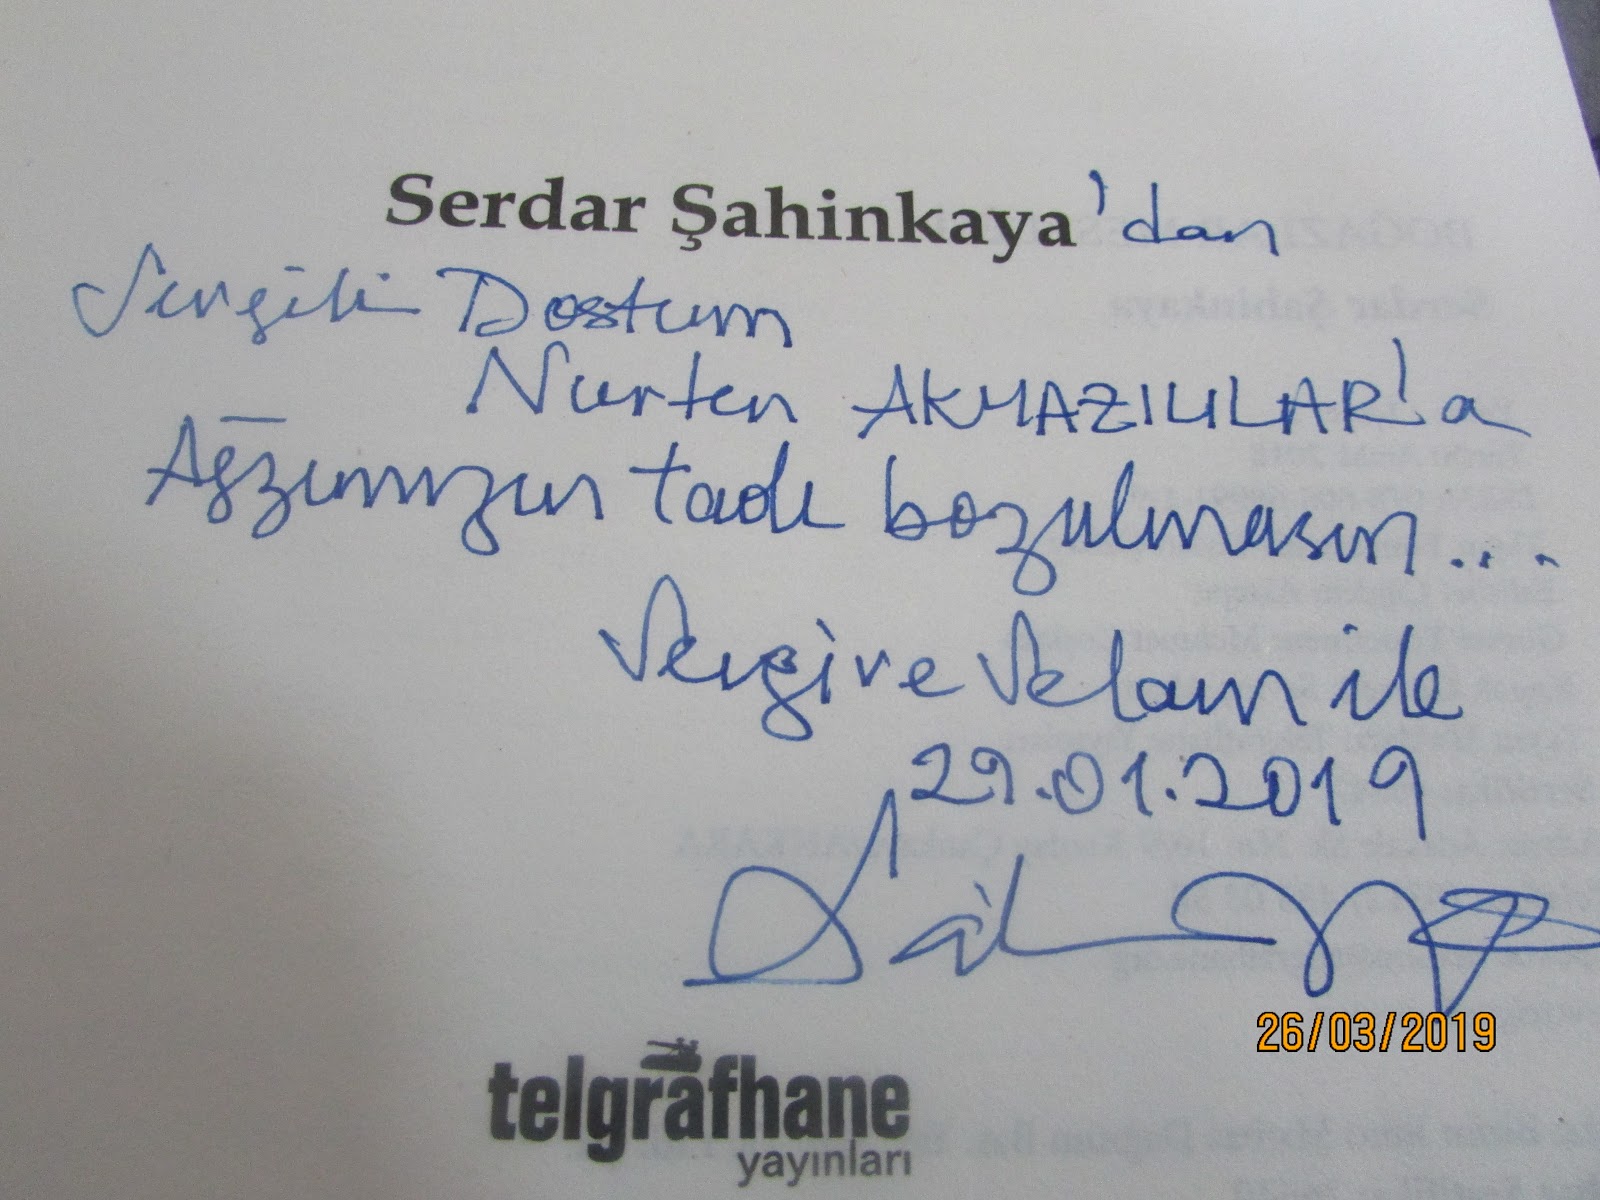 Serdar Şahinkaya'dan
Sevgili Dostum
Nurten AKYAZILILAR'a
Ağzımızın tadı bozulmasın...
Sevgi ve Selam ile
29.01.2019
26/03/2019
telgrafhane
yayınları